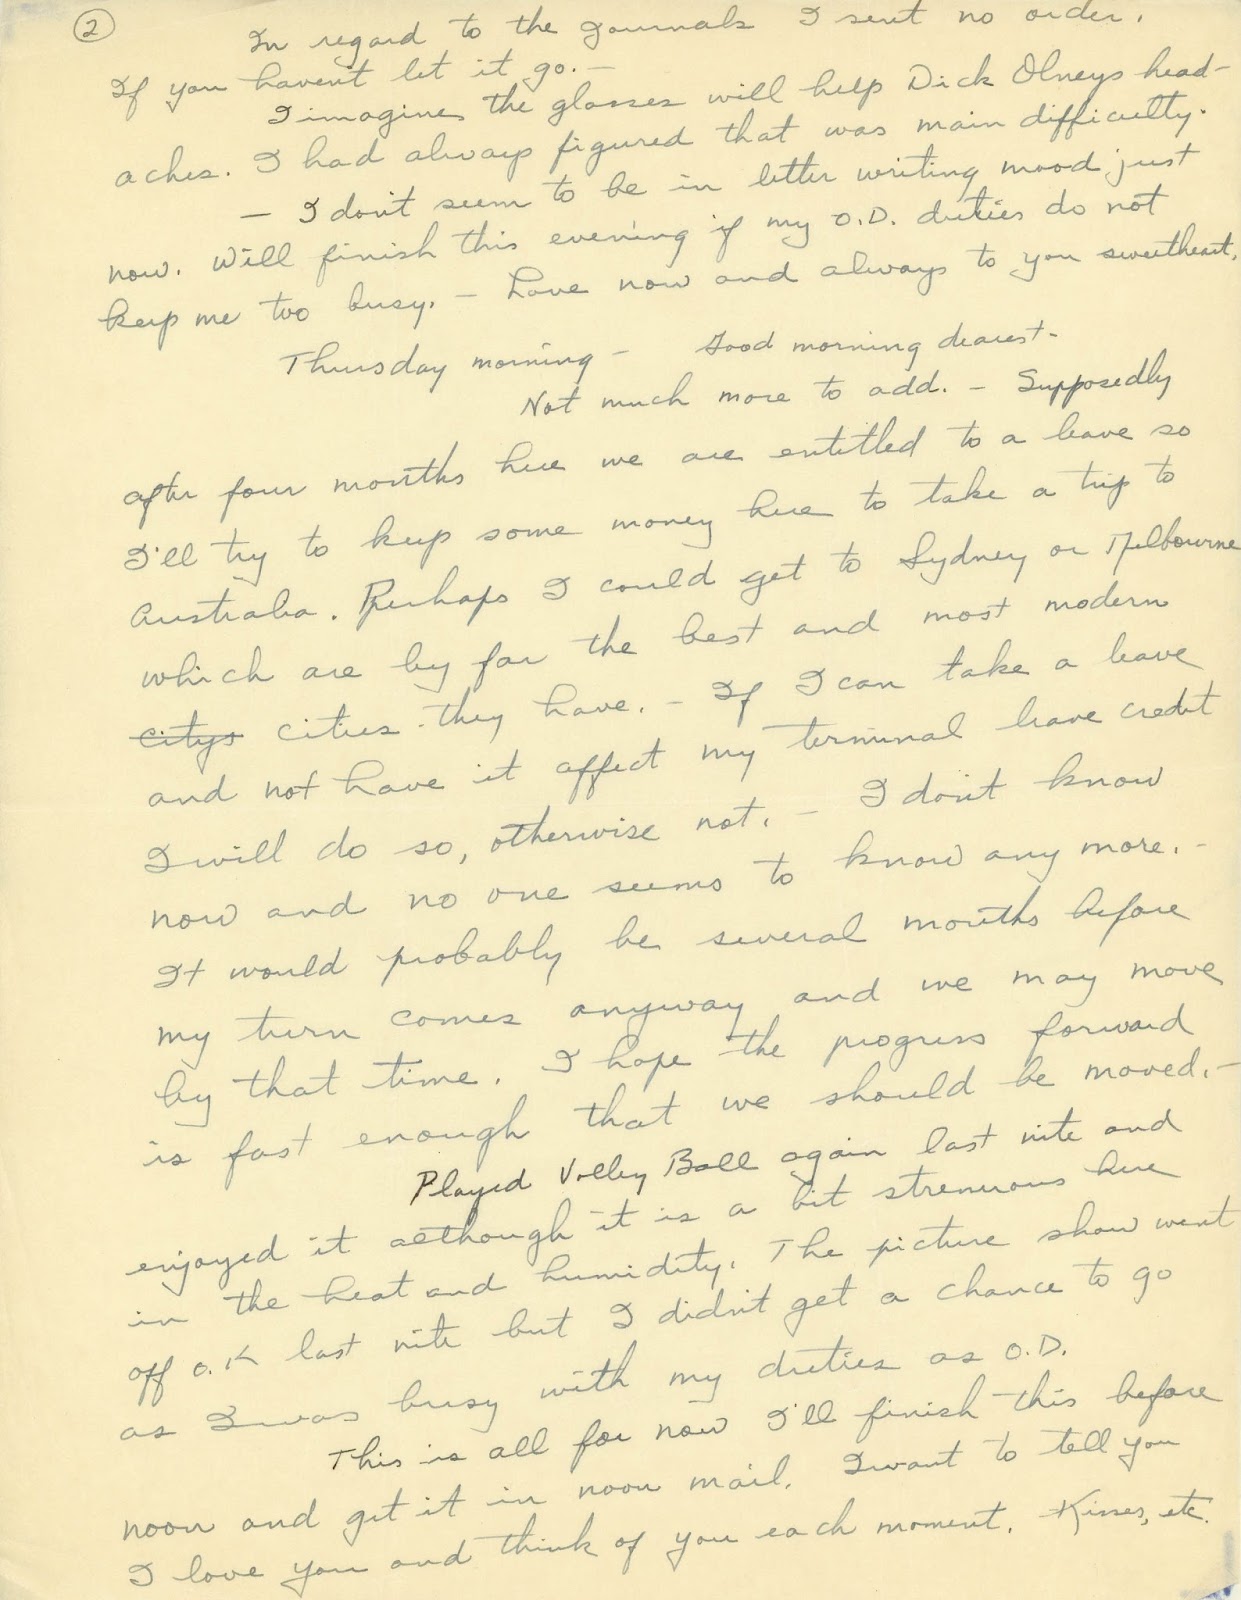 2
In regard to the Journals I sent no order.
If you haven't let it go. —
I imagine the glasses will help Dick Olneys head-
aches. I had always figured that was main difficulty.
— I don't seem to be in letter writing mood just
now. Will finish this evening if my O.D. duties do not
keep me too busy. — Love now and always to you sweetheart.
Thursday morning — Good morning dearest -
Not much more to add. — Supposedly
after four months here we are entitled to a leave so
I'll try to keep some money here to take a trip to
Australia. Perhaps I could get to Sydney or Melbourne
which are by far the best and most modern
citys cities they have. — If I can take a leave
and not have it affect my terminal leave credit
I will do so, otherwise not. — I don't know
now and no one seems to know any more. -
It would probably be several months before
my turn comes anyway and we may move
by that time. I hope the progress forward
is fast enough that we should be moved. —
Played Volley Ball again last nite and
enjoyed it although it is a bit strenuous here
in the heat and humidity. The picture show went
off O.K last nite but I didn't get a chance to go
as I was busy with my duties as O.D.
This is all for now I'll finish this before
noon and get it in noon mail. I want to tell you
I love you and think of you each moment. Kisses, etc.